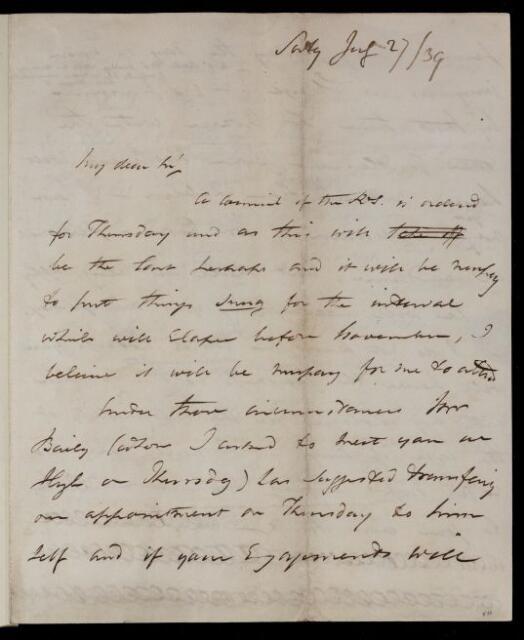 Satdy July 27/39
My dear Sir,
A Council of the R.S. is ordered
for Thursday and as this will
be the last perhaps and it will be necessy
to put things snug for the interval
which will elapse before November, I
believe it will be necessary for me to attend
Under those circumstances Mr
Baily (whom I asked to meet you at
on Thursday) has suggested transferring
our appointment on Thursday to him
self and if your Engagements will